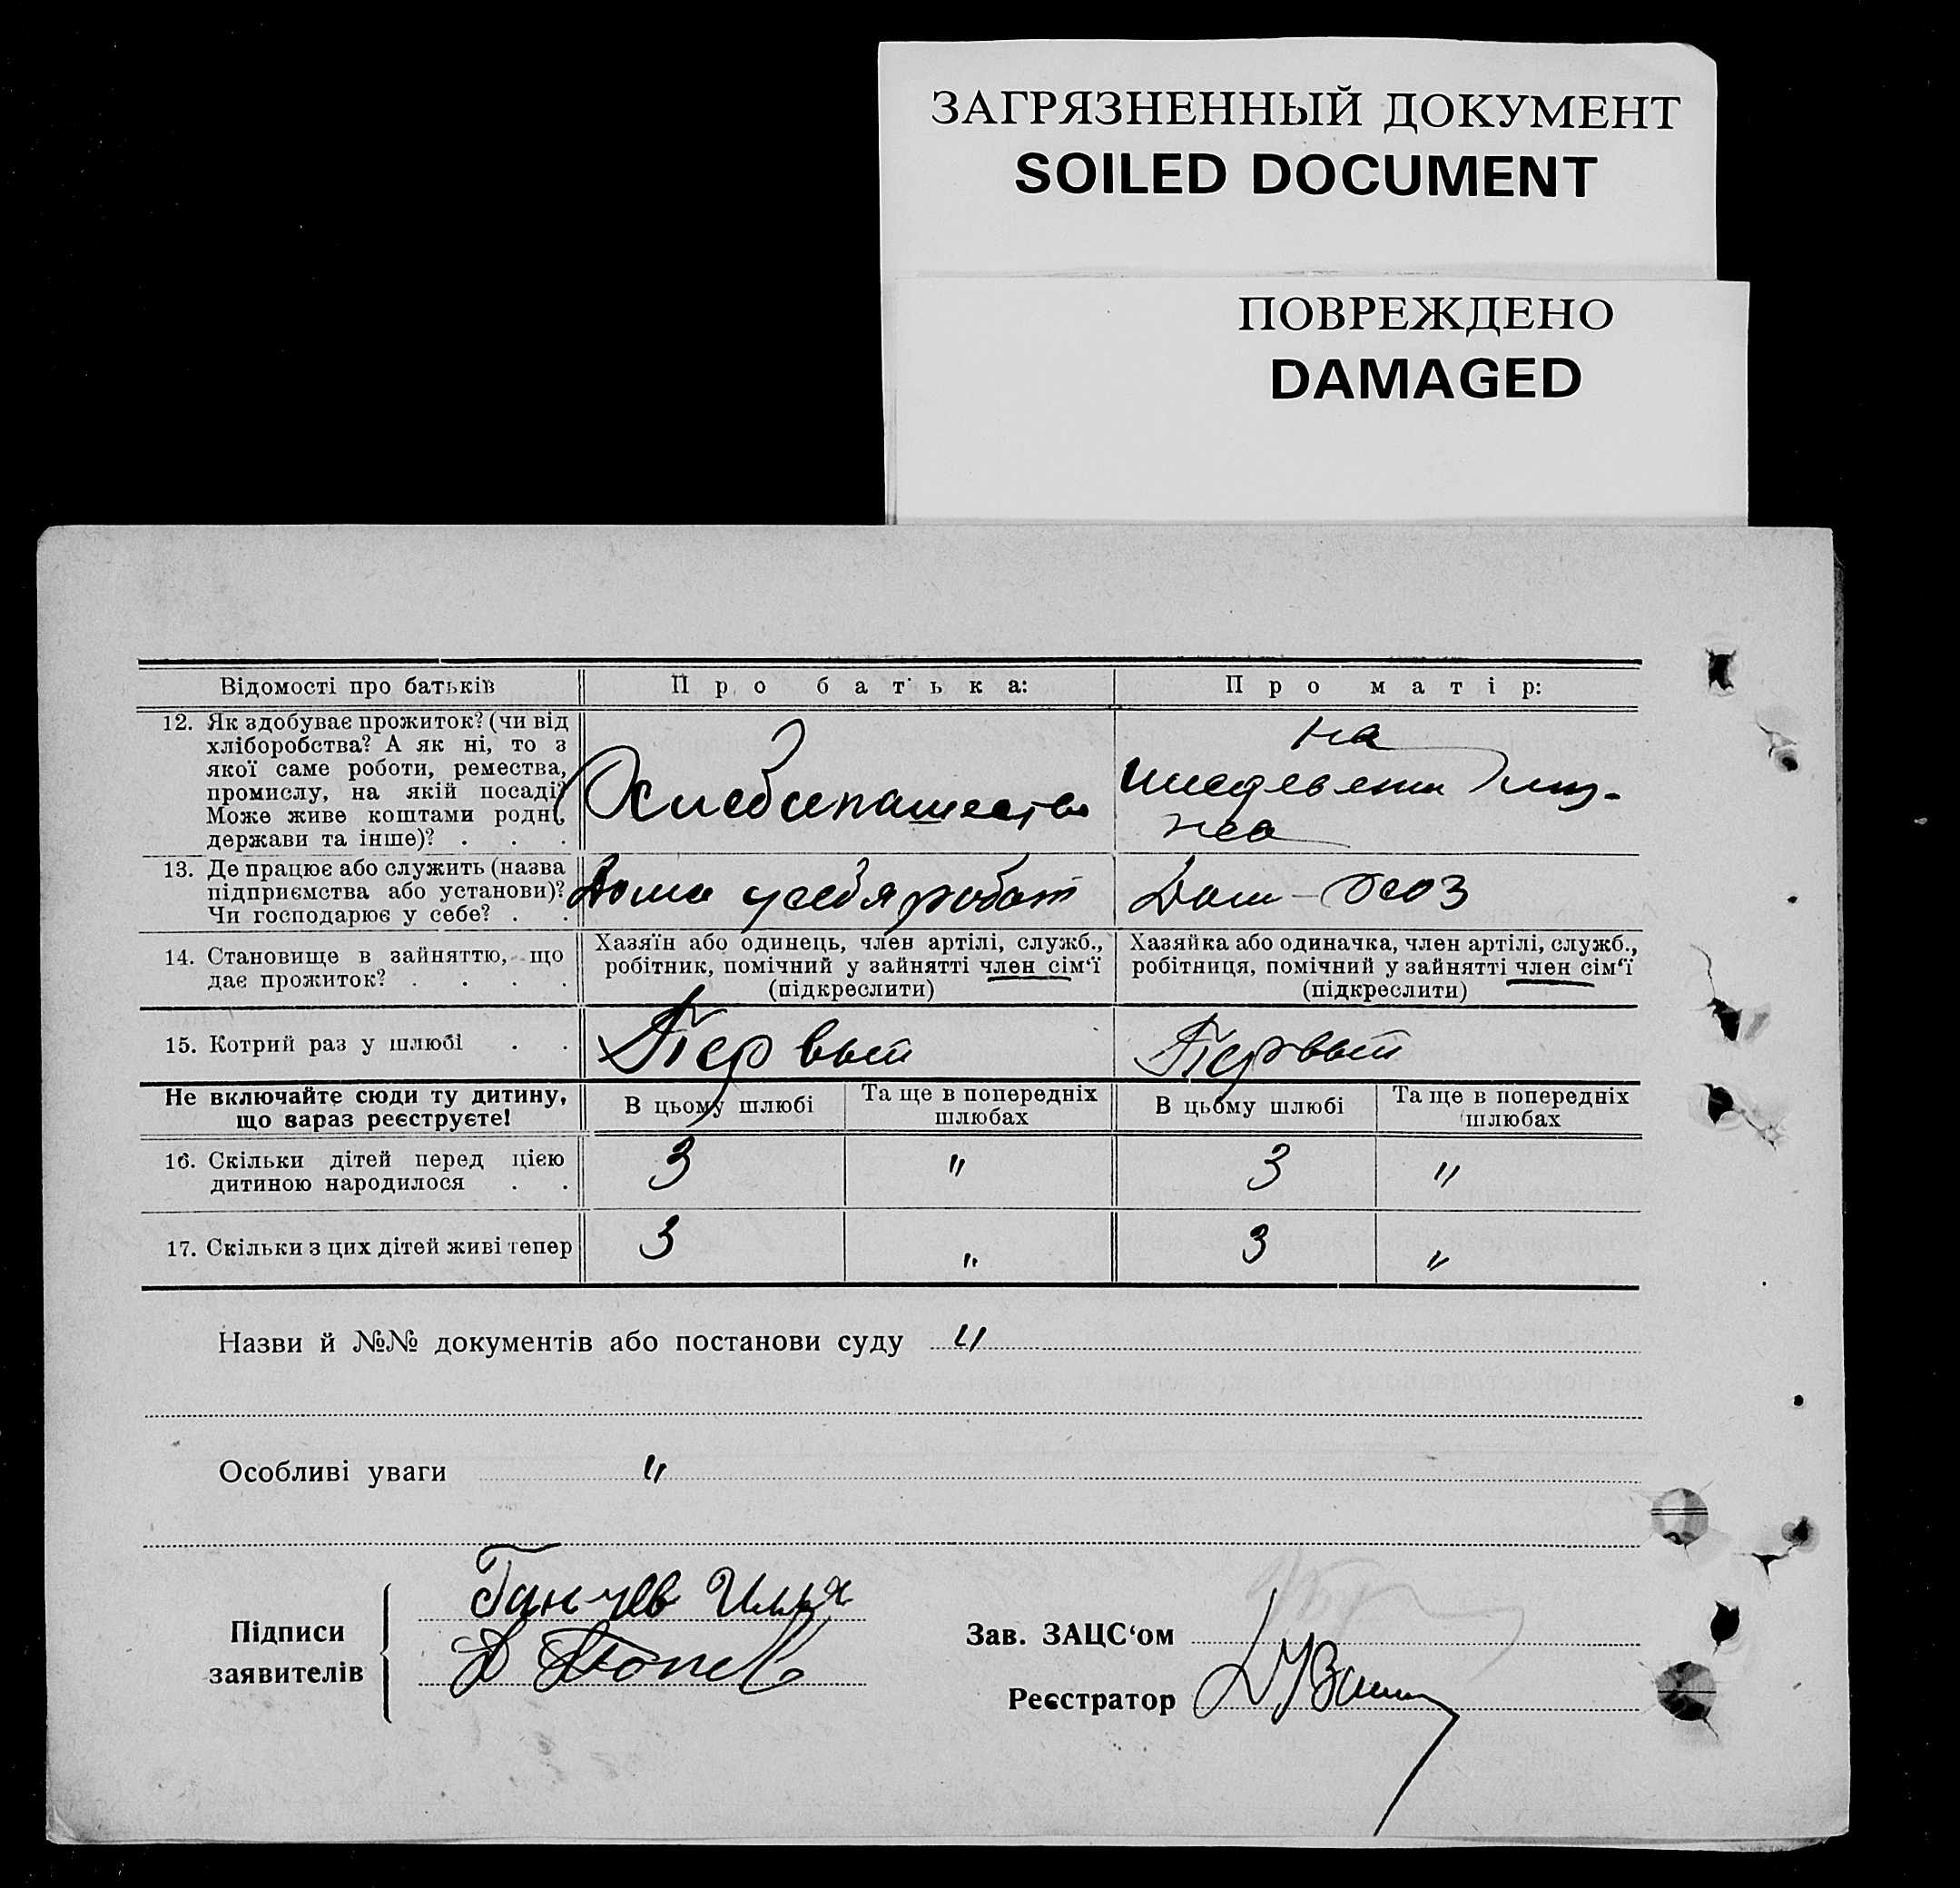 ЗАГРЯЗНЕННЫЙ ДОКУМЕНТ
SOILED DOCUMENT
ПОВРЕЖДЕНО
DAMAGED
Відомості про батьків
Про батька:
Про матір:
12. Як здобуває прожиток? (чи від
хліборобства? А як ні, то з
якої саме роботи, ремества,
промислу, на якій посаді?
Може живе коштами родні,
держави та інше)? . . .
Хлебопашество
на
иждевении
13. Де працює або служить (назва
підприємства або установи)?
Чи господарює у себе? . .
Дома у себя работ
Дом-хоз
14. Становище в зайняттю, що
дає прожиток? . . . .
Хазяїн або одинець, член артілі, служб.,
робітник, помічний у зайнятті член сім‘ї
(підкреслити)
Хазяйка або одиначка, член артілі, служб.,
робітниця, помічний у зайнятті член сім‘ї
(підкреслити)
15. Котрий раз у шлюбі . .
Первый
Первый
Не включайте сюди ту дитину,
що зараз реєструєте!
В цьому шлюбі
Та ще в попередніх
шлюбах
В цьому шлюбі
Та ще в попередніх
шлюбах
16. Скільки дітей перед цією
дитиною народилося . .
3
"
3
"
17. Скільки з цих дітей живі тепер
3
"
3
"
Назви й №№ документів або постанови суду "
Особливі уваги "
Підписи
заявителів
Ганчев Илья
Д Попов
Зав. ЗАЦС‘ом
Реєстратор